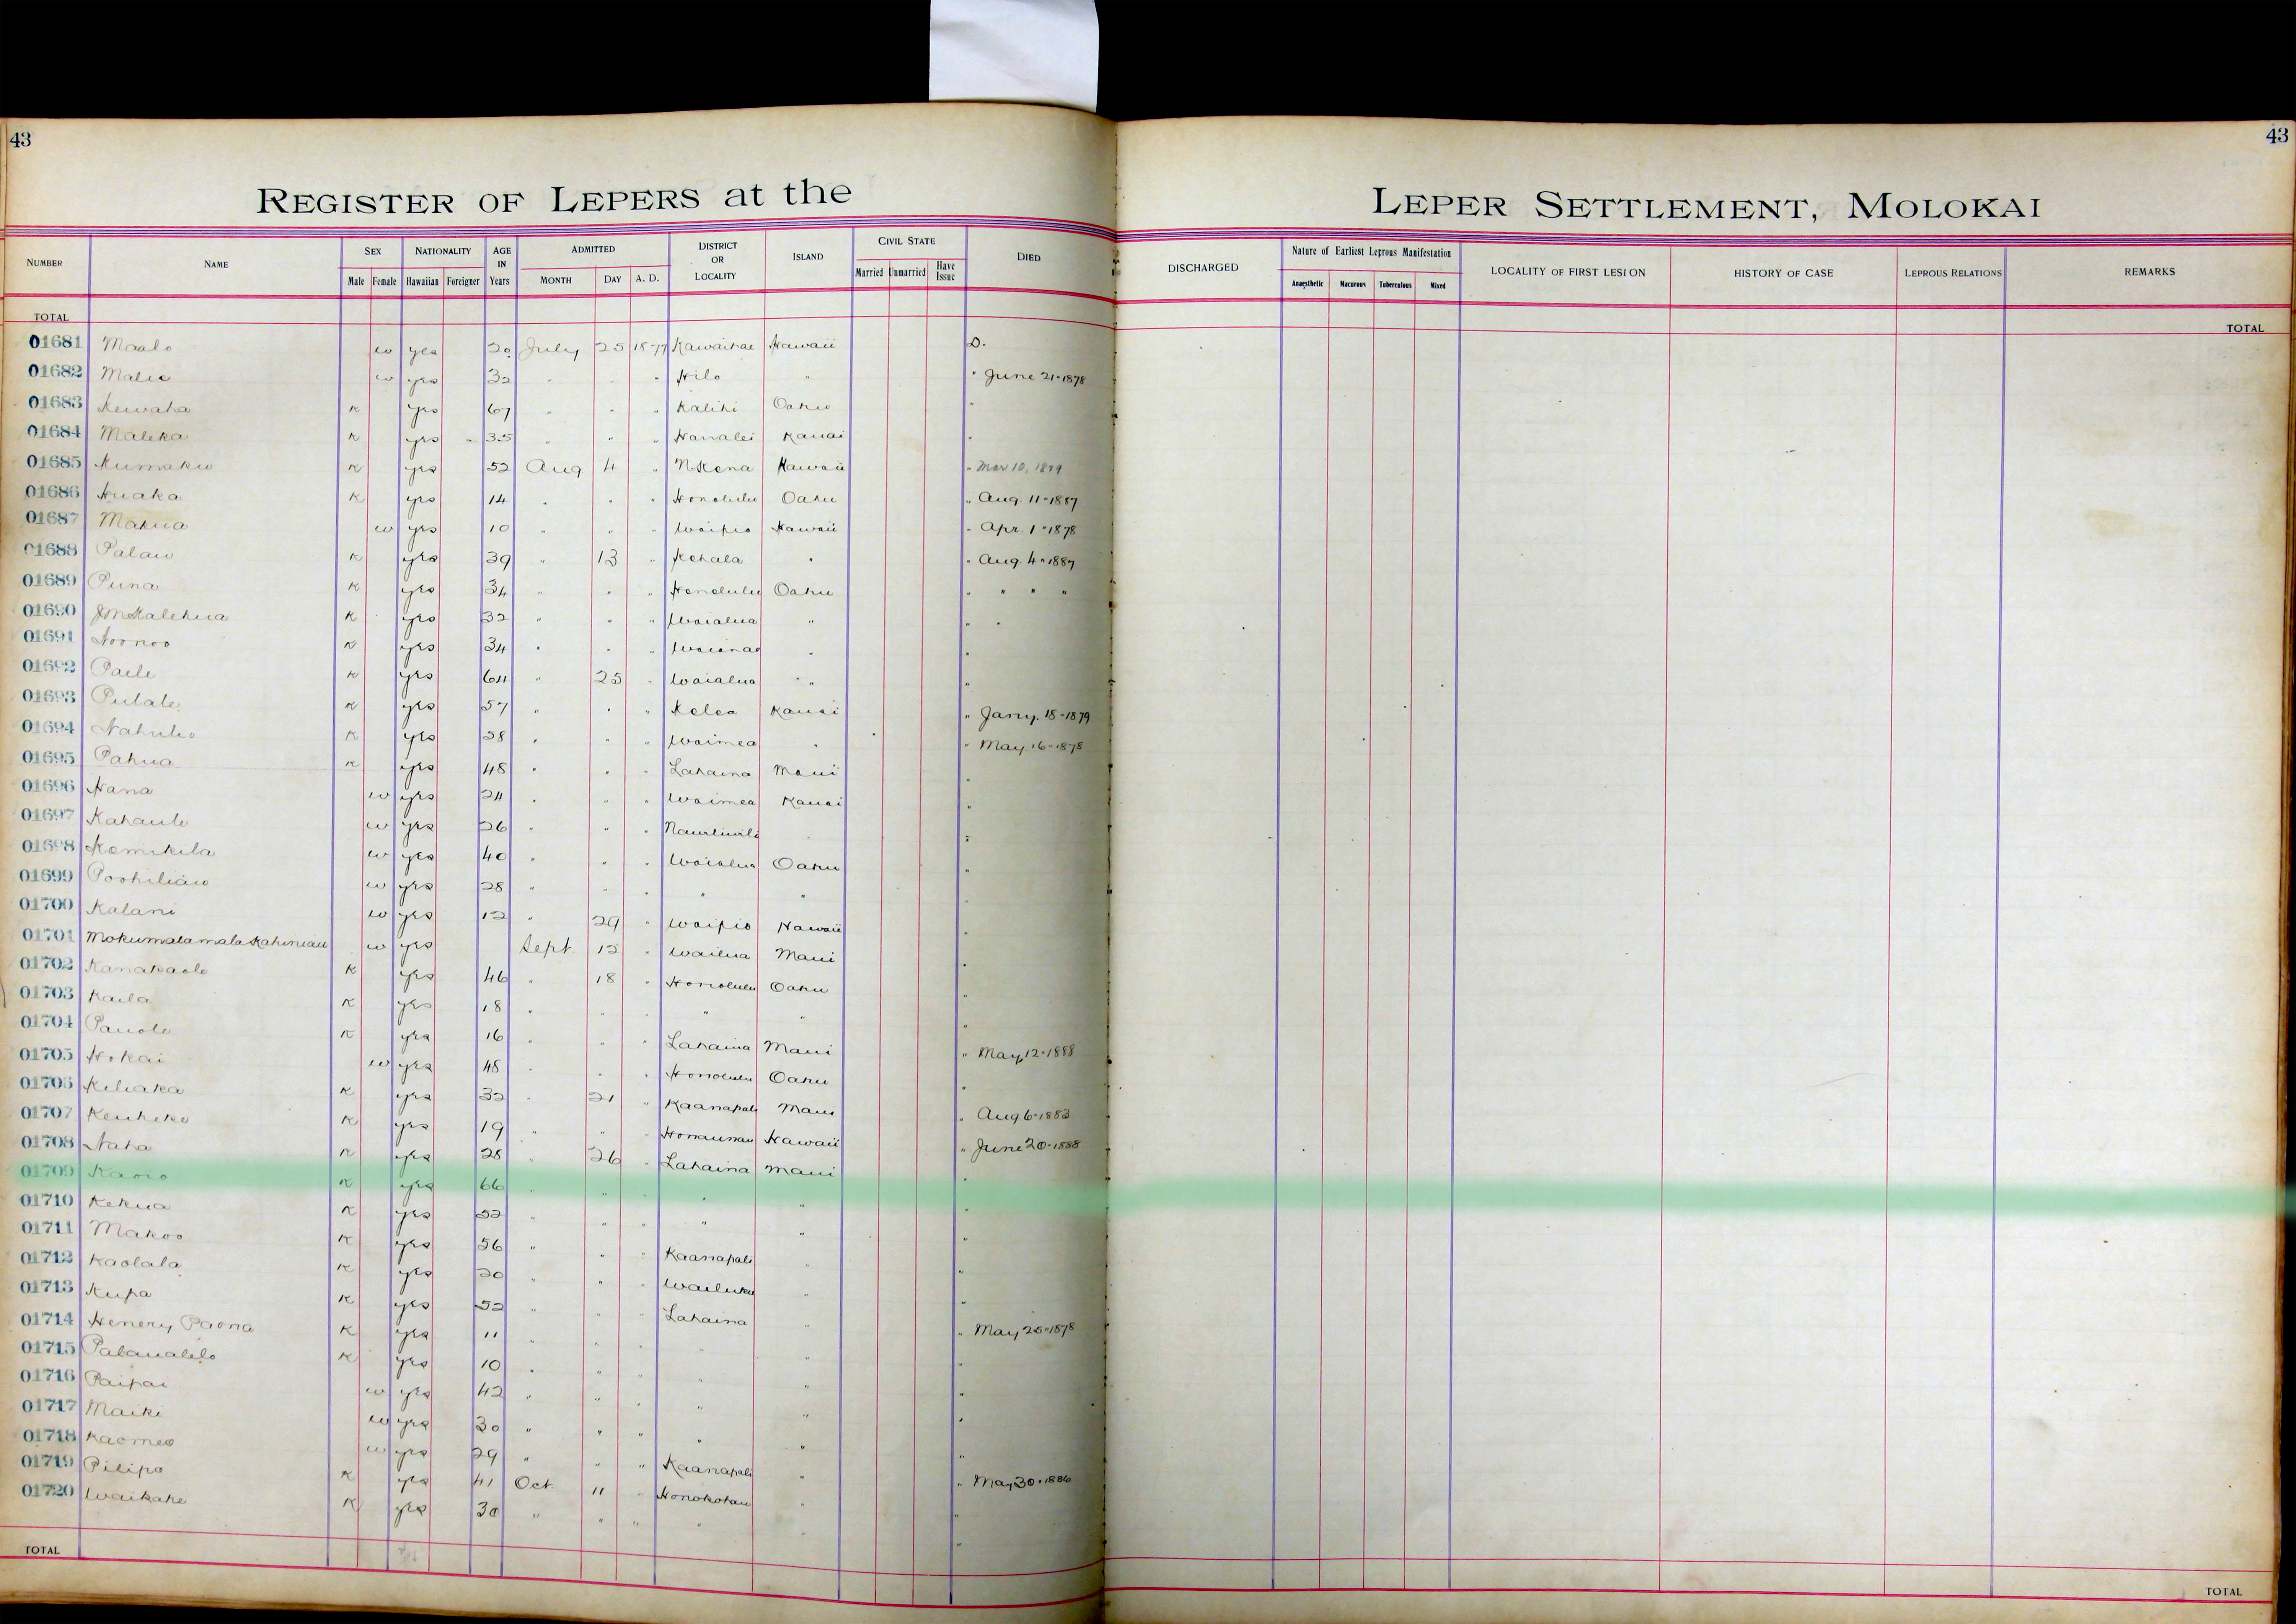 43
43
REGISTER OF LEPERS at the
LEPER SETTLEMENT, MOLOKAI
NUMBER NAME SEX Male Female NATIONALITY Hawaiian Foreigner AGE IN Years ADMITTED MONTH DAY A. D. DISTRICT OR LOCALITY ISLAND CIVIL STATE Married Unmarried Have Issue DIED
DISCHARGED Nature of Earliest Leprous Manifestation Anaesthetic Macurous Tuberculous Mixed LOCALITY OF FIRST LESION HISTORY OF CASE LEPROUS RELATIONS REMARKS
TOTAL
TOTAL
01681 Maalo w yes 20 July 25 1877 Kawaihae Hawaii D.
01682 w yes 32 " " " Hilo " " June 21-1878
01683 Kewaha K yes 67 " " " Kalihi Oahu "
01684 Maleka K yes 35 " " " Hanalei Kauai "
01685 Kumaku K yes 52 Aug 4 " N Kona Hawaii " Mar 10, 1879
01686 Huaka K yes 14 " " " Honolulu Oahu " Aug. 11-1887
01687 Mahua w yes 10 " " " Waipio Hawaii " Apr. 1-1878
01688 Palau K yes 39 " 13 " Kohala " " Aug. 4-1887
01689 Puna K yes 34 " " " Honolulu Oahu " " " "
01690 K yes 32 " " " Waialua " " "
01691 Noonoo K yes 34 " " " Waianae " "
01692 Paele K yes 64 " 25 " Waialua " " "
01693 Pulale K yes 57 " " " Kolea Kauai " Jany. 18-1879
01694 K yes 28 " " " Waimea " " May. 16-1878
01695 Pahua K yes 48 " " " Lahaina Maui "
01696 Hana w yes 24 " " " Waimea Kauai "
01697 Kahaule w yes 26 " " " "
01698 Kamikila w yes 40 " " " Waialua Oahu "
01699 Poohiliau w yes 28 " " " " "
01700 Kalani w yes 12 " 29 " Waipio Hawaii
01701 Mokumalamala Kahiniau w yes Sept 12 " Wailua Maui "
01702 Kanakaole K yes 46 " 18 " Honolulu Oahu "
01703 Kaila K yes 18 " " " " " "
01704 Pauole K yes 16 " " " Lahaina Maui "
01705 Hokai w yes 48 " " " Honolulu Oahu " May 12-1888
01706 Keliaka K yes 32 " 21 " Kaanapali Maui "
01707 Keuheke K yes 19 " " " Honaunau Hawaii " Aug 6-1883
01708 Naha K yes 28 " 26 " Lahaina Maui " June 20-1888
01709 K yes 66 " " " " "
01710 Kekua K yes 52 " " " " " "
01711 Makoo K yes 56 " " " Kaanapali " "
01712 Kaolala K yes 20 " " " Wailuku " "
01713 Kupa K yes 52 " " " Lahaina " "
01714 Henery Paona K yes 11 " " " " " May 25-1878
01715 Palaualelo K yes 10 " " " " " "
01716 Paipai w yes 42 " " " " " "
01717 Maiki w yes 30 " " " " " "
01718 Kaomea w yes 29 " " " Kaanapali " "
01719 Pilipo K yes 41 Oct 11 " Honokohau " " May 30-1886
01720 Waikahe K yes 30 " " " " " "
TOTAL
TOTAL